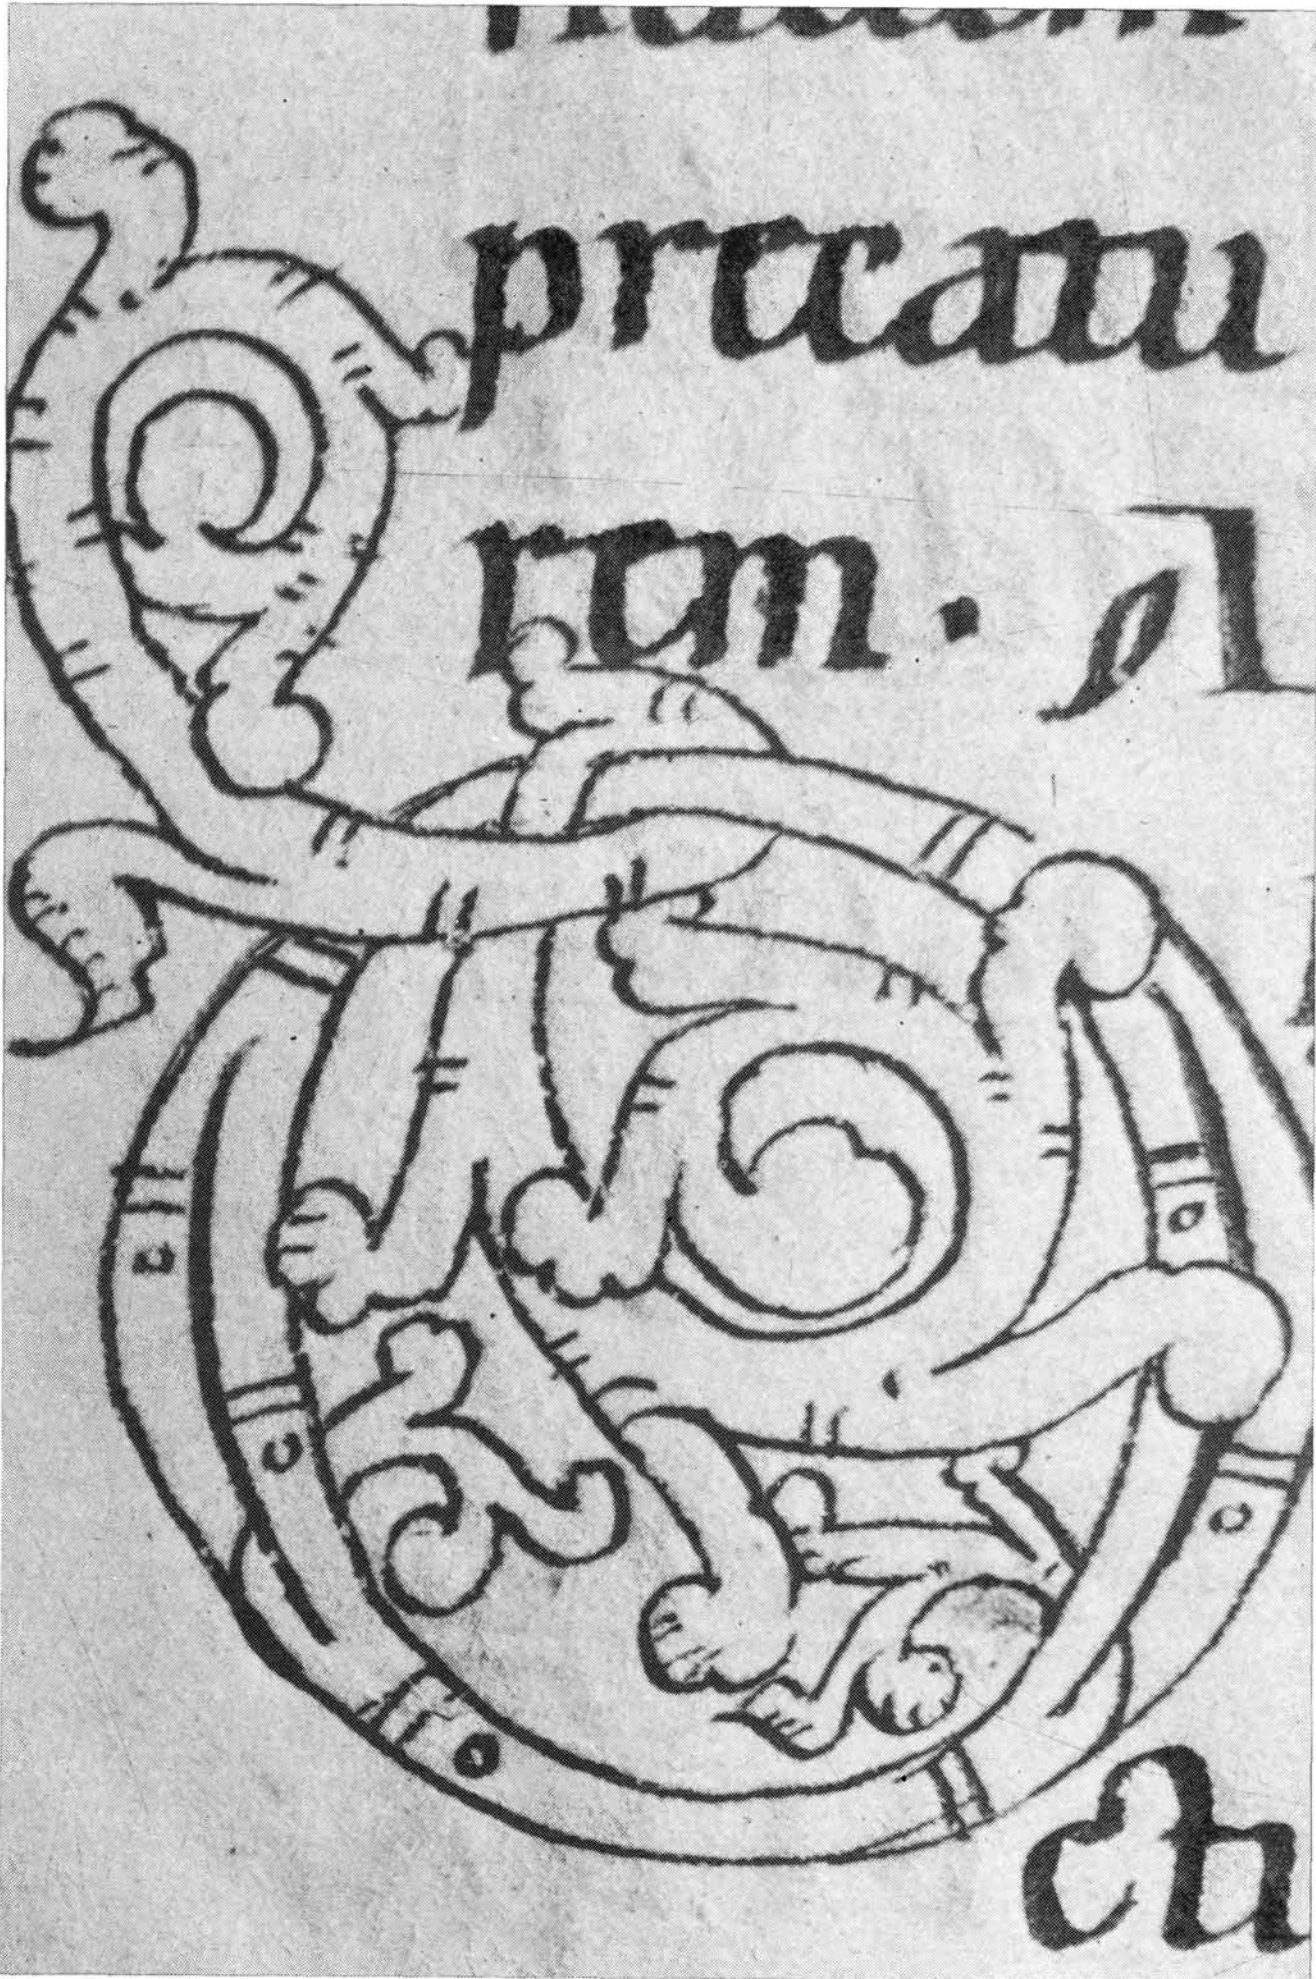 precatu
rem. A
ctu